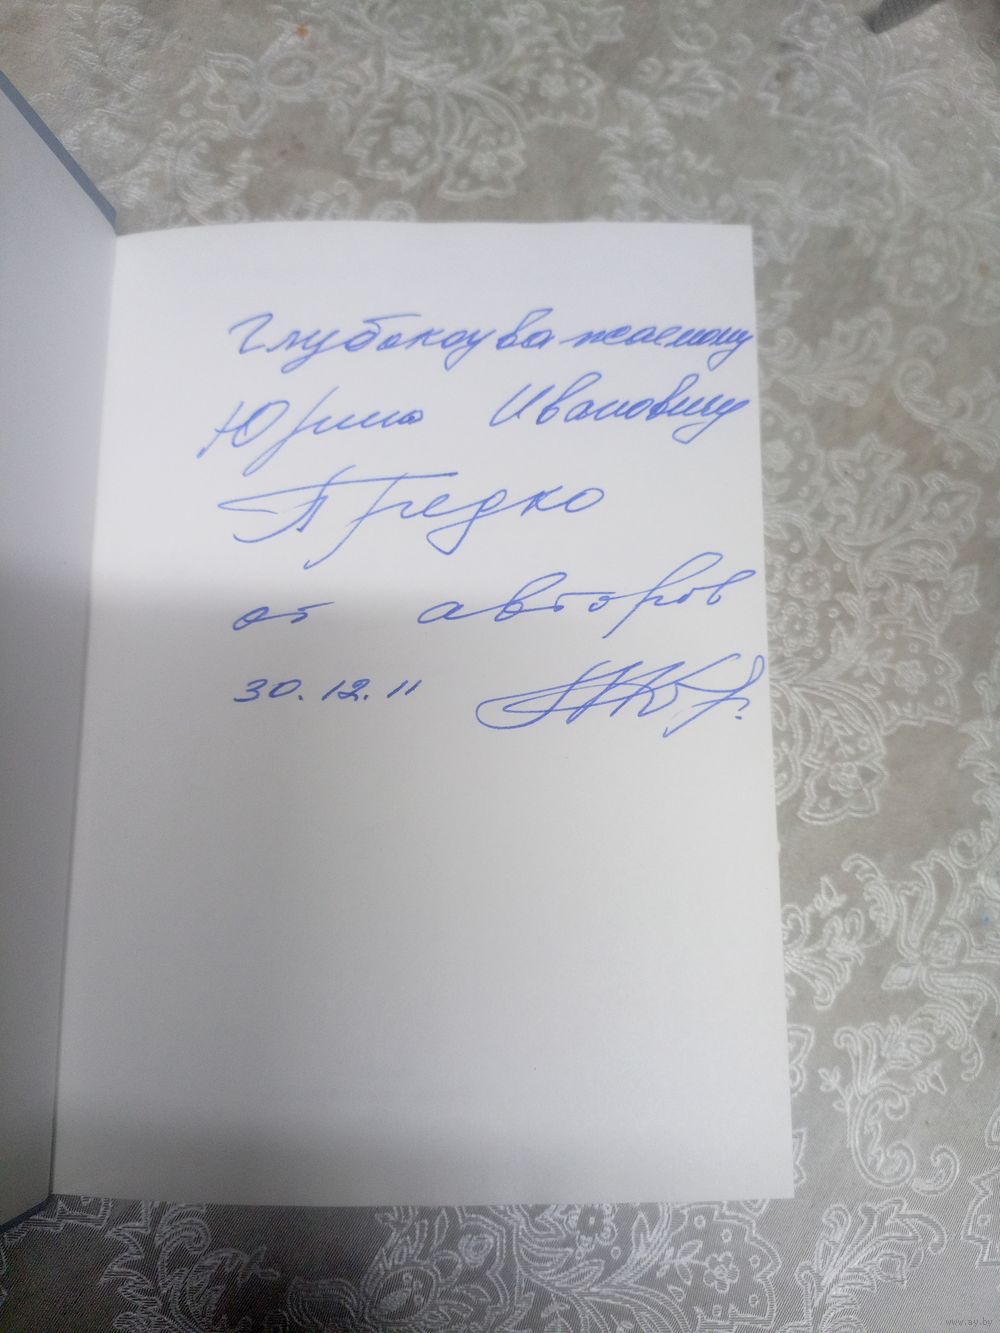 Глубокоуважаемому
Юрию Ивановичу
Предко
от авторов
30.12.11
www.ay.by